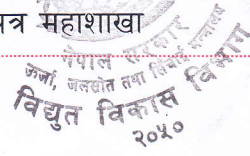 पत्र महाशाखा
नेपाल सरकार
ऊर्जा, जलस्रोत तथा सिंचाई मन्त्रालय
विद्युत विकास विभाग
२०५०